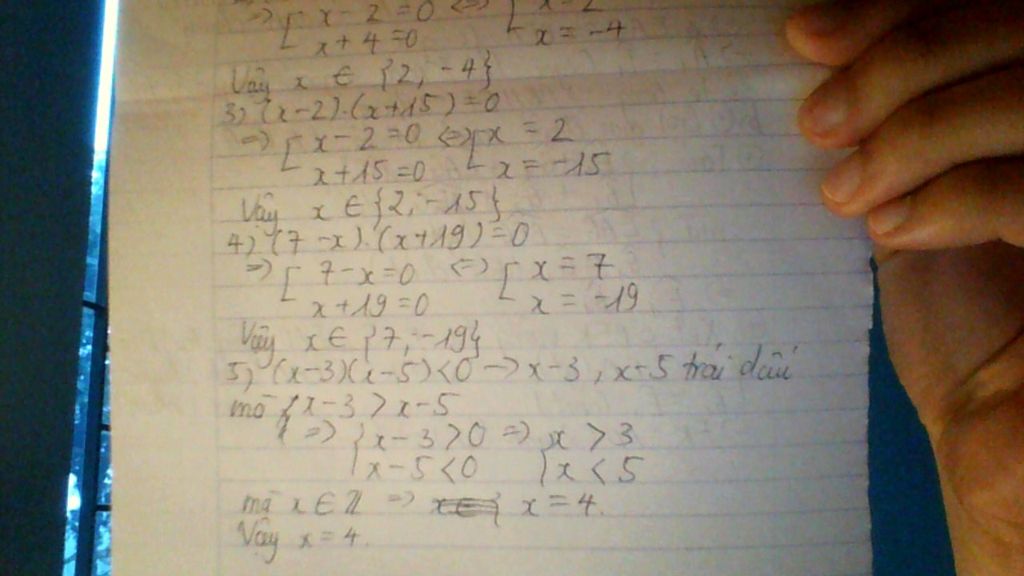 => [ x - 2 = 0 <=> [ x = 2
x + 4 = 0 x = -4
Vậy x ∈ {2; -4}
3) (x-2).(x+15) = 0
=> [ x - 2 = 0 <=> [ x = 2
x + 15 = 0 x = -15
Vậy x ∈ {2; -15}
4) (7-x).(x+19) = 0
=> [ 7 - x = 0 <=> [ x = 7
x + 19 = 0 x = -19
Vậy x ∈ {7; -19}
5) (x-3)(x-5) < 0 -> x-3, x-5 trái dấu
mà x-3 > x-5
=> { x - 3 > 0 => { x > 3
x - 5 < 0 x < 5
mà x ∈ Z => x = 4.
Vậy x = 4.